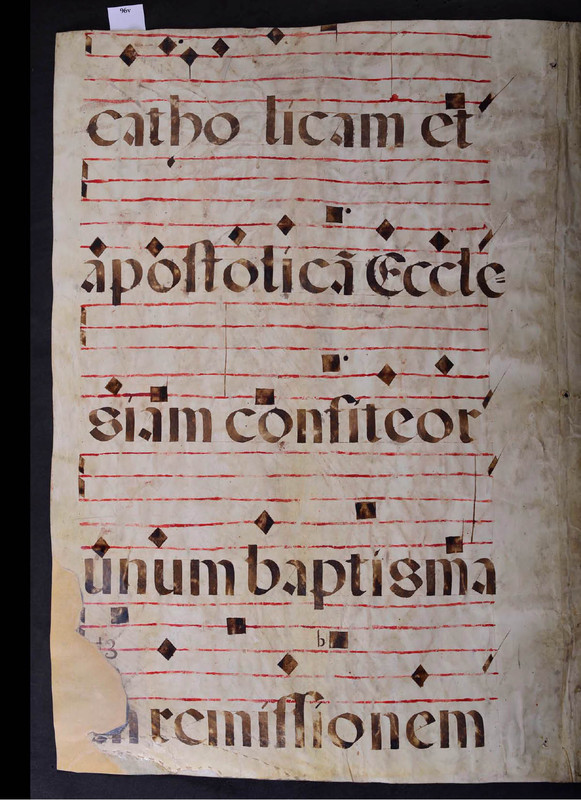 96v
catho licam et
apostolicã Eccle=
siam confiteor
unum baptisma
b
in remissionem